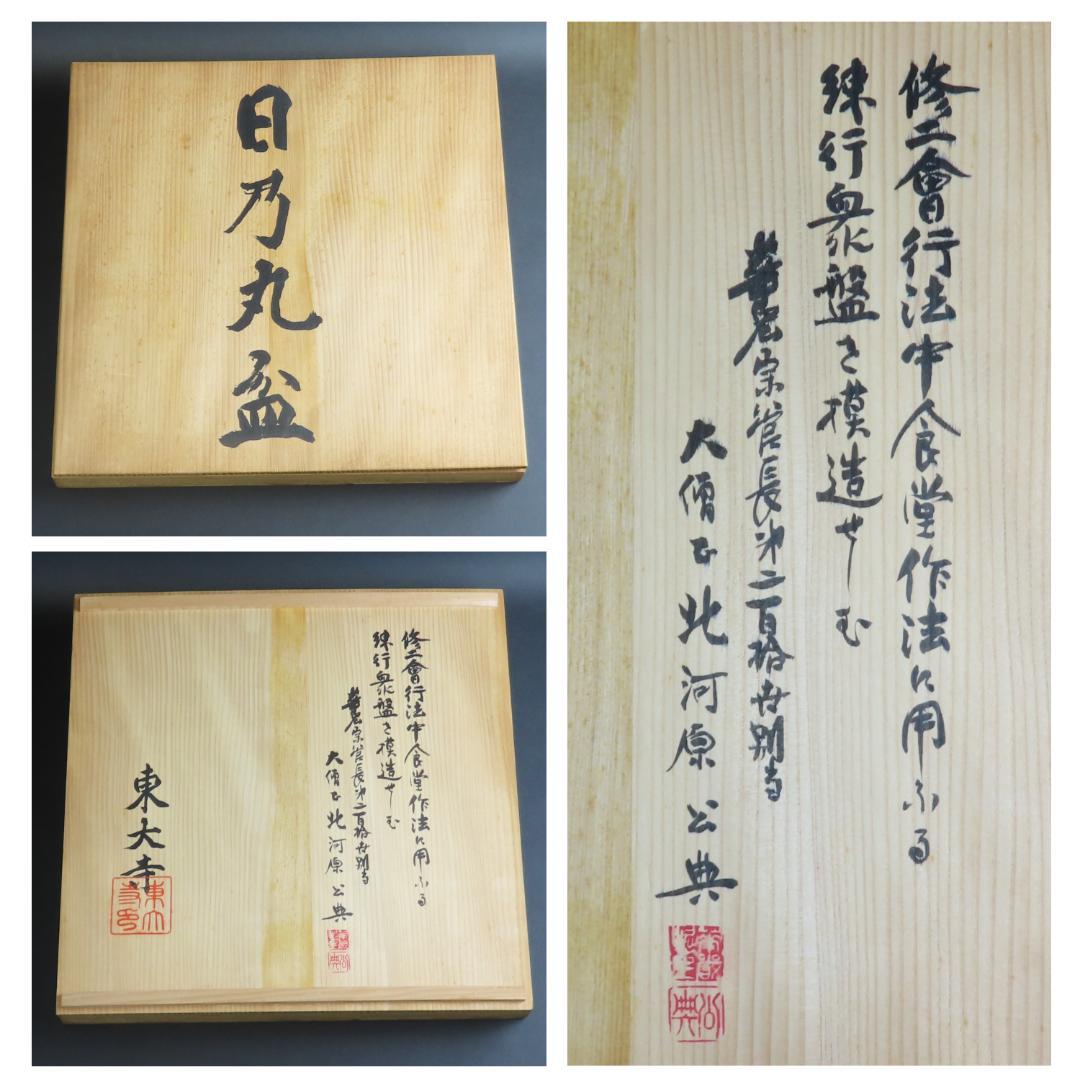 日乃丸盆
修二會行法中食堂作法に用ふる
練行衆盤を模造せしむ
華嚴宗管長第二百拾世別当
大僧正北河原公典
東大寺
東大寺印
修二會行法中食堂作法に用ふる
練行衆盤を模造せしむ
華嚴宗管長第二百拾世別当
大僧正北河原公典